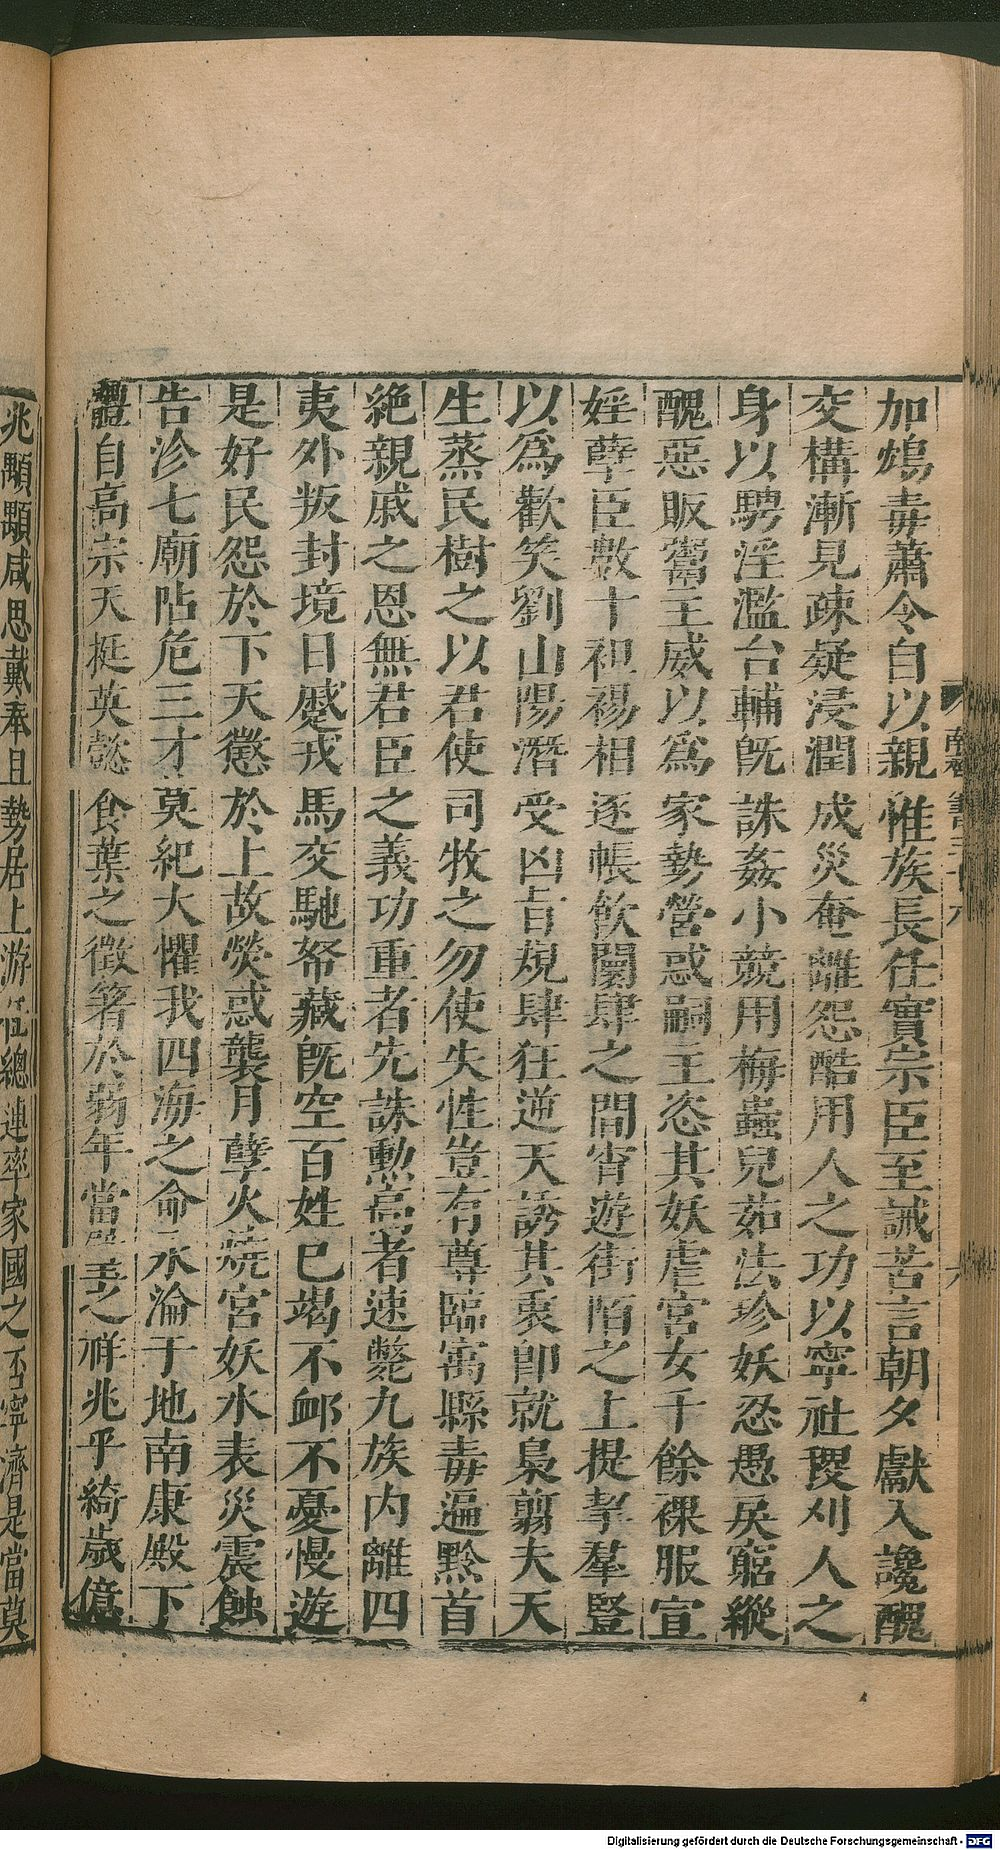 加鴆毒蕭令自以親惟族長任實宗臣至誠苦言朝夕獻入讒醜
交構漸見疎疑浸潤成災奄離怨酷用人之功以寧社稷刈人之
身以騁淫濫台輔旣誅姦小競用梅蟲兒茹法珍妖忍愚戾窮縱
醜惡販鬻主威以爲家勢營惑嗣主恣其妖虐宮女千餘裸服宣
婬孽臣數十袒裼相逐帳飮闤肆之間宵遊街陌之上提挈羣豎
以爲歡笑劉山陽潛受凶旨規肆狂逆天誘其衷卽就梟翦夫天
生蒸民樹之以君使司牧之勿使失性豈有尊臨寓縣毒遍黔首
絶親戚之恩無君臣之義功重者先誅勲高者速斃九族内離四
夷外叛封境日蹙戎馬交馳帑藏旣空百姓已竭不卹不憂慢遊
是好民怨於下天懲於上故熒惑襲月孽火燒宮妖水表災震蝕
告沴七廟阽危三才莫紀大懼我四海之命永淪于地南康殿下
體自高宗天挺英懿食葉之徵著於弱年當璧之祥兆乎綺歲億
兆顒顒咸思戴奉且勢居上游任總連率家國之否寧濟是當莫
南齊書三十八
八
Digitalisierung gefördert durch die Deutsche Forschungsgemeinschaft - DFG